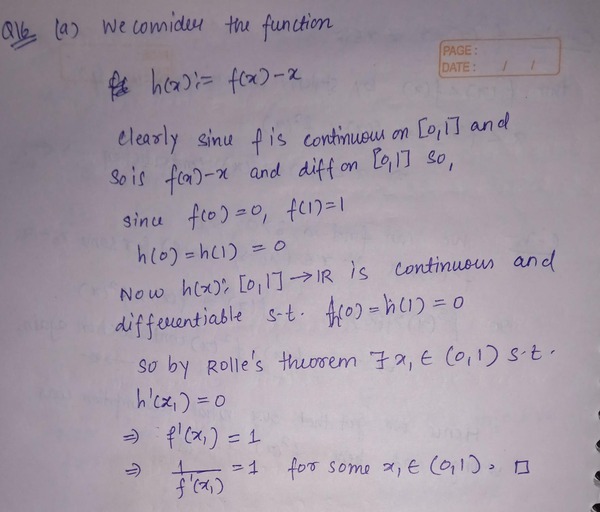 Q16 (a) We consider the function
PAGE:
DATE: / /
h(x) := f(x) - x
Clearly since f is continuous on [0,1] and
so is f(x)-x and diff on [0,1] so,
since f(0)=0, f(1)=1
h(0)=h(1) = 0
Now h(x): [0,1] → IR is continuous and
differentiable s.t. h(0) = h(1) = 0
So by Rolle's theorem ∃ x₁ ∈ (0,1) s.t.
h'(x₁) = 0
⇒ f'(x₁) = 1
⇒ 1/f'(x₁) = 1 for some x₁ ∈ (0,1). □